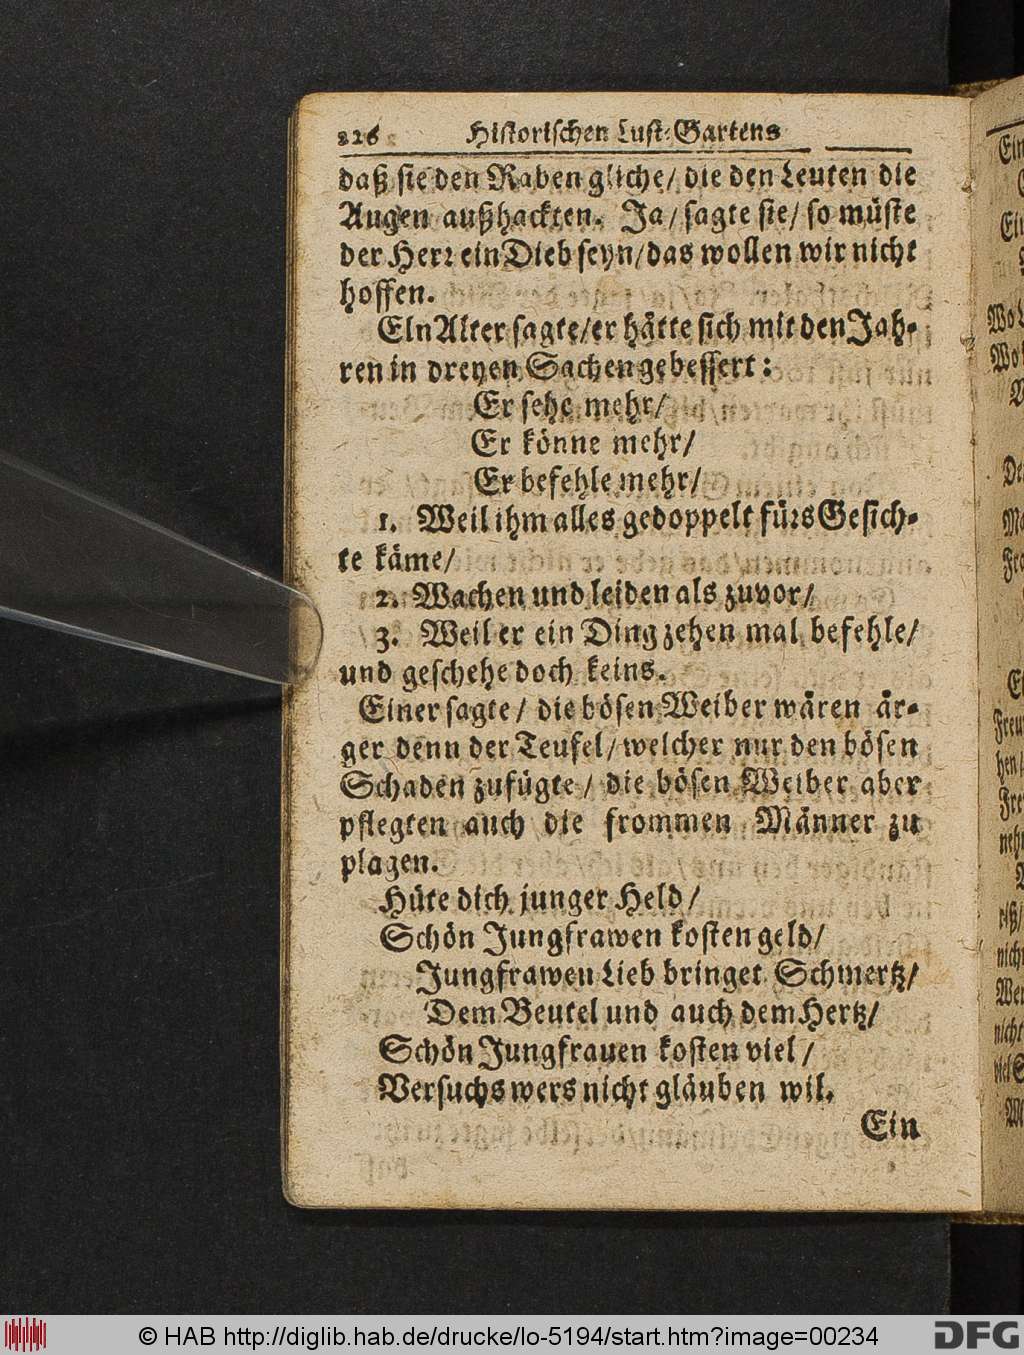 226 Historischen Lust-Gartens
daß sie den Raben gliche/ die den Leuten die
Augen außhackten. Ja/ sagte sie/ so müste
der Herr ein Dieb seyn/ das wollen wir nicht
hoffen.
EIn Alter sagte/ er hätte sich mit den Jah-
ren in dreyen Sachen gebessert:
Er sehe mehr/
Er könne mehr/
Er befehle mehr/
1. Weil ihm alles gedoppelt fürs Gesich-
te käme/
2. Wachen und leiden als zuvor/
3. Weil er ein Ding zehen mal befehle/
und geschehe doch keins.
Einer sagte/ die bösen Weiber wären är-
ger denn der Teufel/ welcher nur den bösen
Schaden zufügte/ die bösen Weiber aber
pflegten auch die frommen Männer zu
plagen.
Hüte dich junger Held/
Schön Jungfrawen kosten geld/
Jungfrawen Lieb bringet Schmertz/
Dem Beutel und auch dem Hertz/
Schön Jungfrauen kosten viel/
Versuchs wers nicht gläuben wil.
Ein
© HAB http://diglib.hab.de/drucke/lo-5194/start.htm?image=00234
DFG